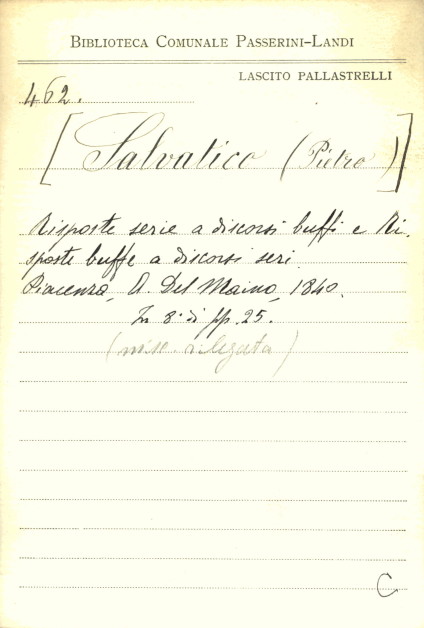 BIBLIOTECA COMUNALE PASSERINI-LANDI
LASCITO PALLASTRELLI
462.
[Salvatico (Pietro)]
Risposte serie a discorsi buffi e Ri-
sposte buffe a discorsi seri.
Piacenza, A. Del Maino, 1840.
In 8.° di pp. 25.
(misc. rilegata)
C